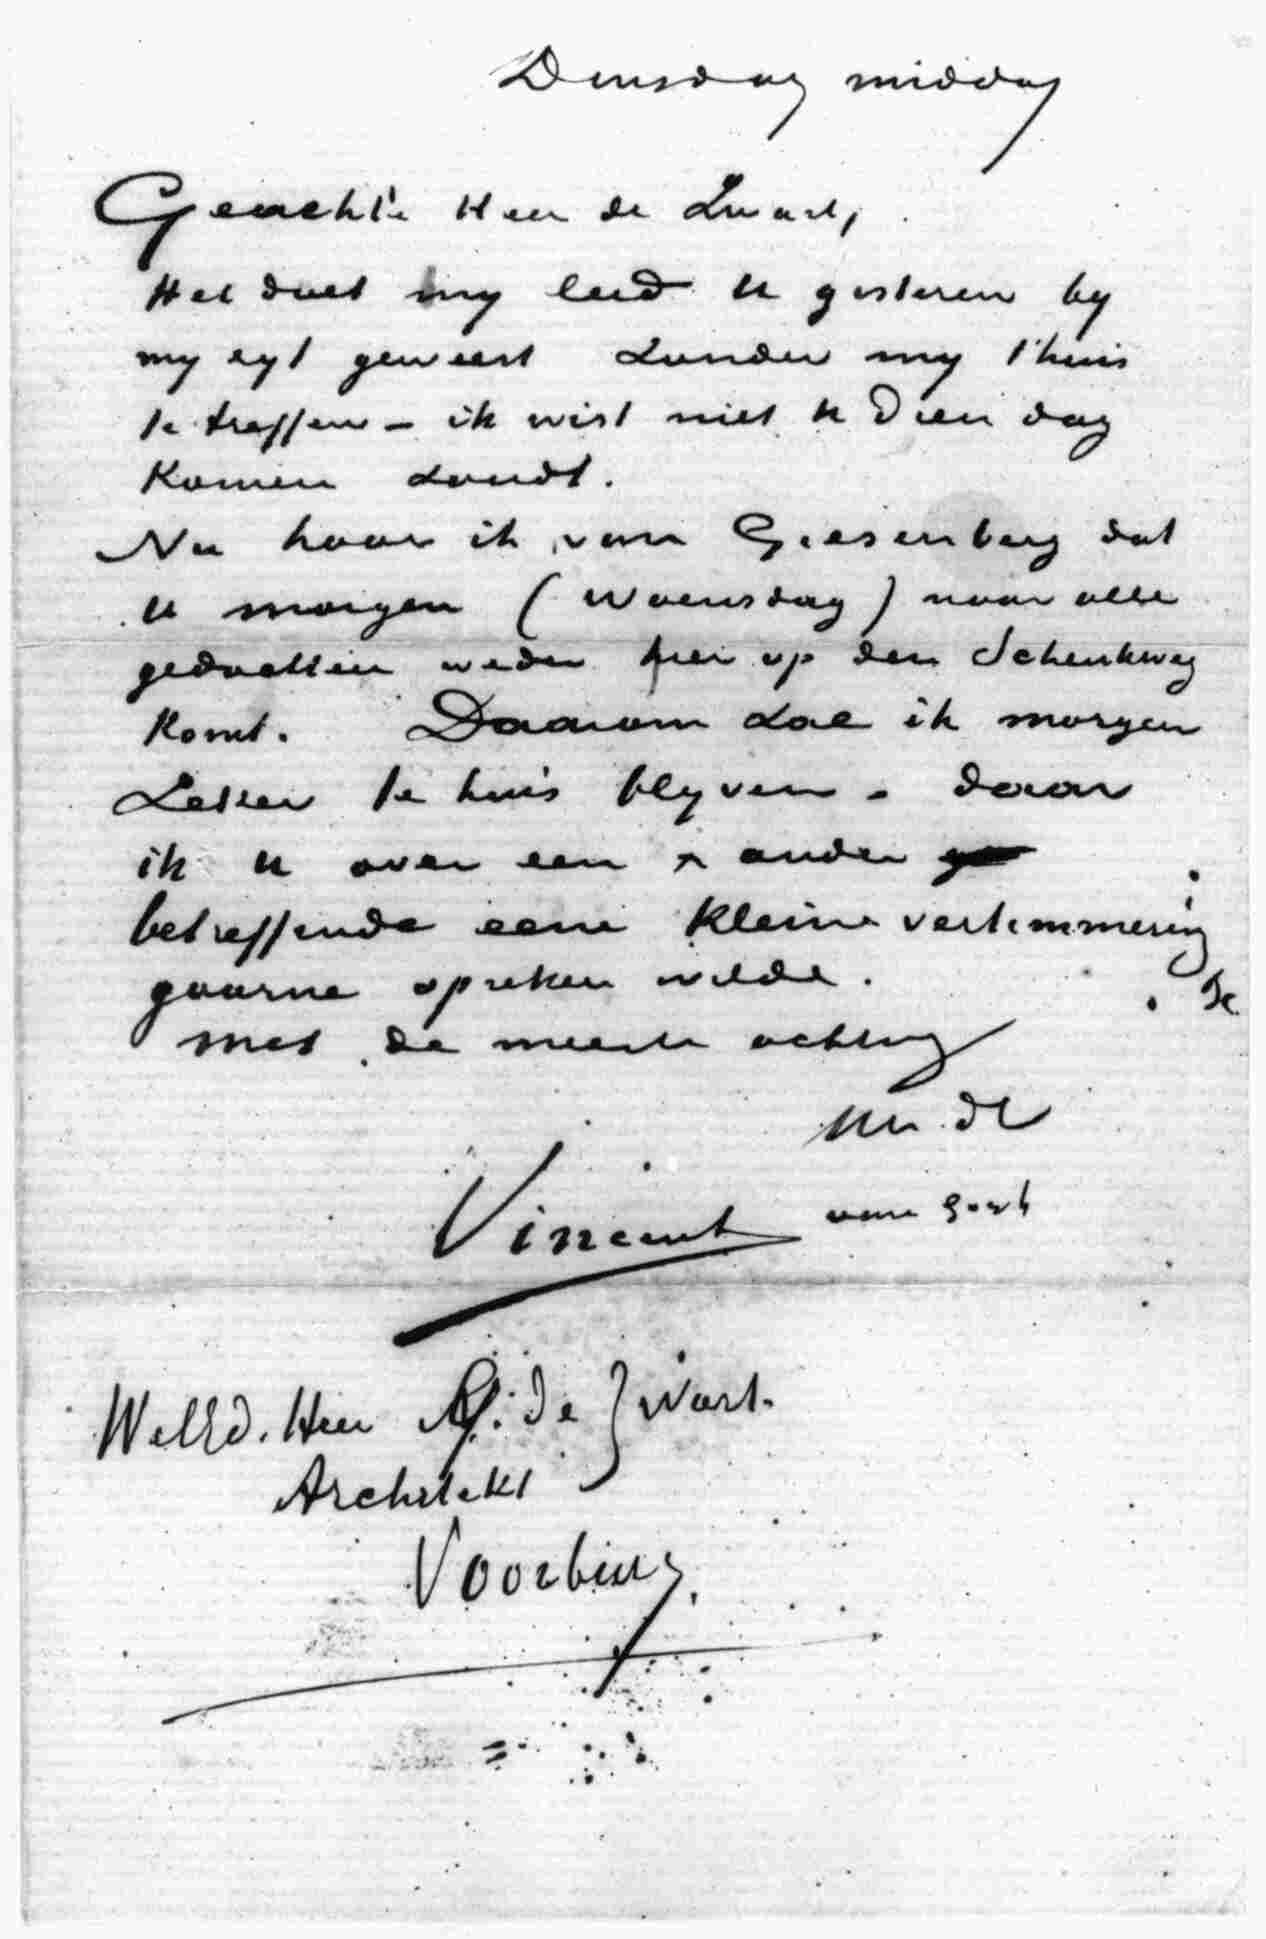 Dinsdag middag
Geachte Heer de Zwart,
Het doet my leed U gisteren by
my zyt geweest zonder my t'huis
te treffen – ik wist niet U dien dag
komen zoudt.
Nu hoor ik van Giesenberg dat
U morgen (Woensdag) naar alle
gedachten weder hier op den Schenkweg
komt. Daarom zal ik morgen
zeker te huis blyven – daar
ik U over een & ander
betreffende eene kleine vertimmering
gaarne spreken wilde.
Met de meeste achting
Uw. d.
Vincent van Gogh
WelEd. Heer M. de Zwart.
Architekt
Voorburg.